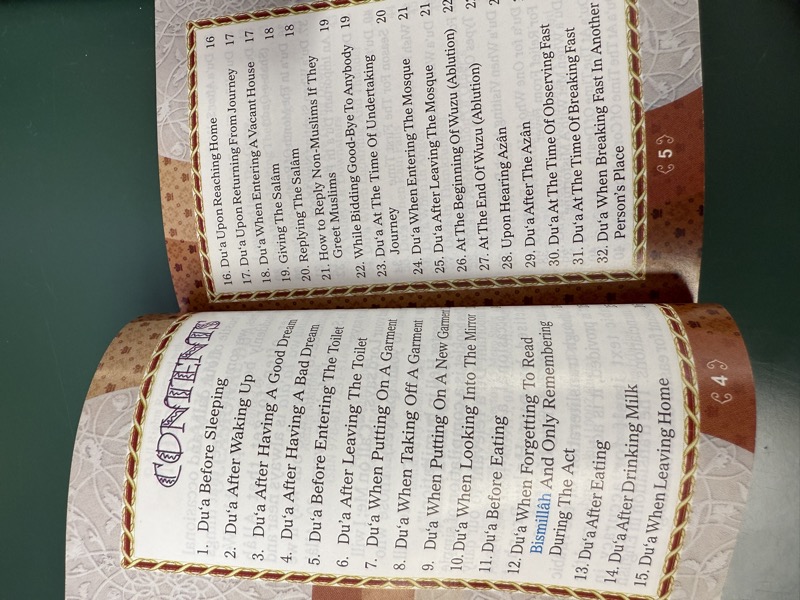 CONTENTS
1. Du'a Before Sleeping
2. Du'a After Waking Up
3. Du'a After Having A Good Dream
4. Du'a After Having A Bad Dream
5. Du'a Before Entering The Toilet
6. Du'a After Leaving The Toilet
7. Du'a When Putting On A Garment
8. Du'a When Taking Off A Garment
9. Du'a When Putting On A New Garment
10. Du'a When Looking Into The Mirror
11. Du'a Before Eating
12. Du'a When Forgetting To Read
Bismillâh And Only Remembering
During The Act
13. Du'a After Eating
14. Du'a After Drinking Milk
15. Du'a When Leaving Home
4
16. Du'a Upon Reaching Home 16
17. Du'a Upon Returning From Journey 17
18. Du'a When Entering A Vacant House 17
19. Giving The Salâm 18
20. Replying The Salâm 18
21. How to Reply Non-Muslims If They
Greet Muslims 19
22. While Bidding Good-Bye To Anybody 19
23. Du'a At The Time Of Undertaking
Journey 20
24. Du'a When Entering The Mosque 21
25. Du'a After Leaving The Mosque 21
26. At The Beginning Of Wuzu (Ablution) 22
27. At The End Of Wuzu (Ablution)
28. Upon Hearing Azân
29. Du'a After The Azân
30. Du'a At The Time Of Observing Fast
31. Du'a At The Time Of Breaking Fast
32. Du'a When Breaking Fast In Another
Person's Place
5